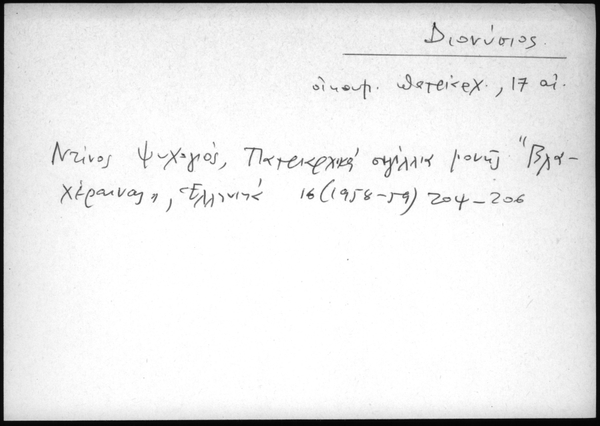 Διονύσιος.
οἰκουμ. πατριάρχ., 17 αἰ.
Ντίνος Ψυχογιός, Πατριαρχικά σιγίλλια μονῆς "Βλα-
χέραινας", Ἑλληνικά 16 (1958-59) 204-206